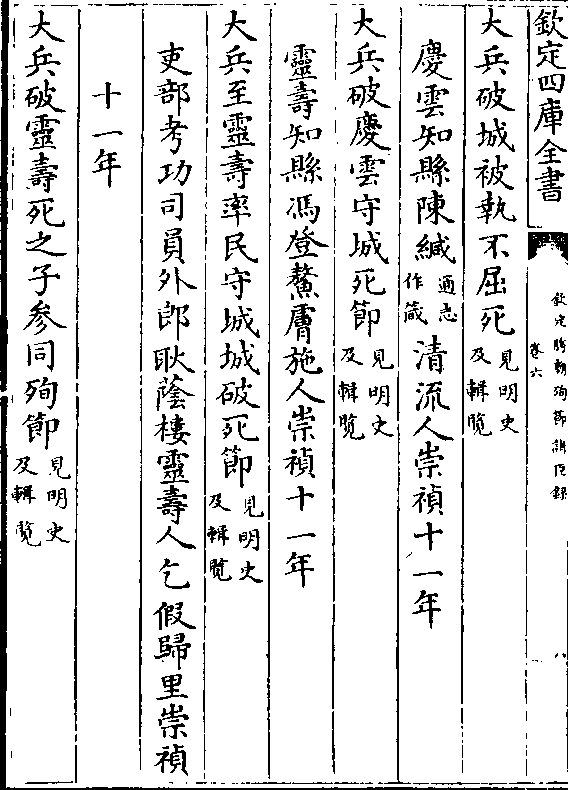 欽定四庫全書
欽定勝朝殉節諸臣錄
卷六
八
大兵破城被執不屈死見明史及輯覽
慶雲知縣陳緘通志作葴清流人崇禎十一年
大兵破慶雲守城死節見明史及輯覽
靈壽知縣馮登鰲膚施人崇禎十一年
大兵至靈壽率民守城城破死節見明史及輯覽
吏部考功司員外郎耿蔭樓靈壽人乞假歸里崇禎
十一年
大兵破靈壽死之子參同殉節見明史及輯覽